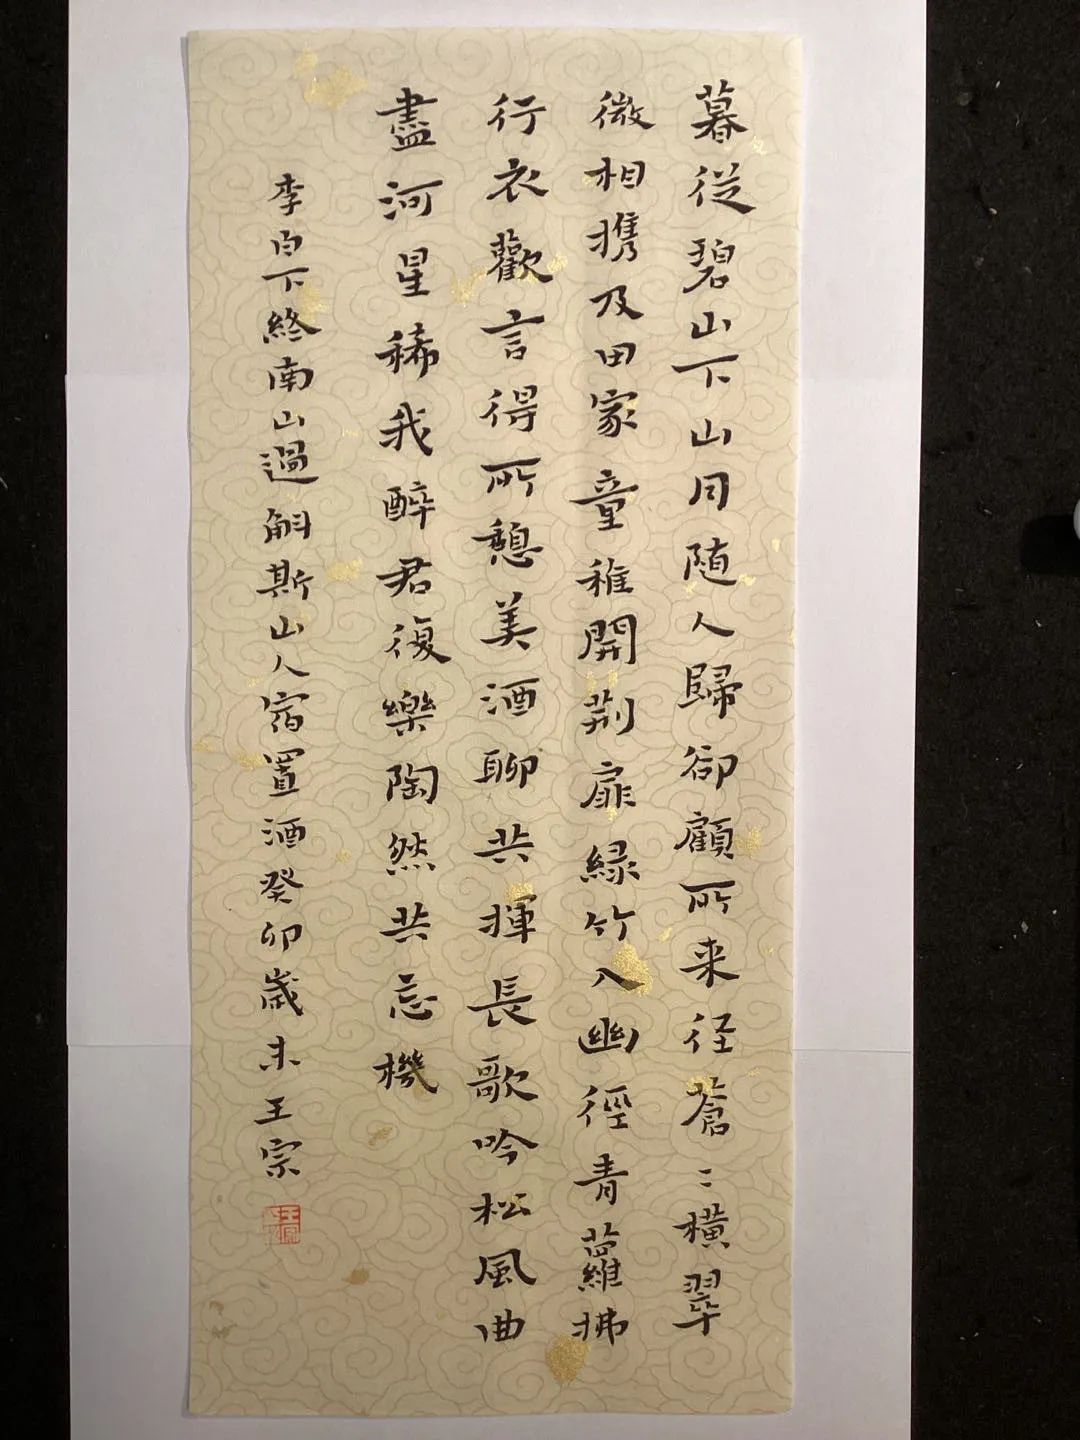 暮從碧山下山月随人歸卻顧所来径蒼〻橫翠
微相攜及田家童稚開荆扉緑竹入幽徑青蘿拂
行衣歡言得所憩美酒聊共揮長歌吟松風曲
盡河星稀我醉君復樂陶然共忘機
李白下終南山過斛斯山人宿置酒癸卯歲末王宗